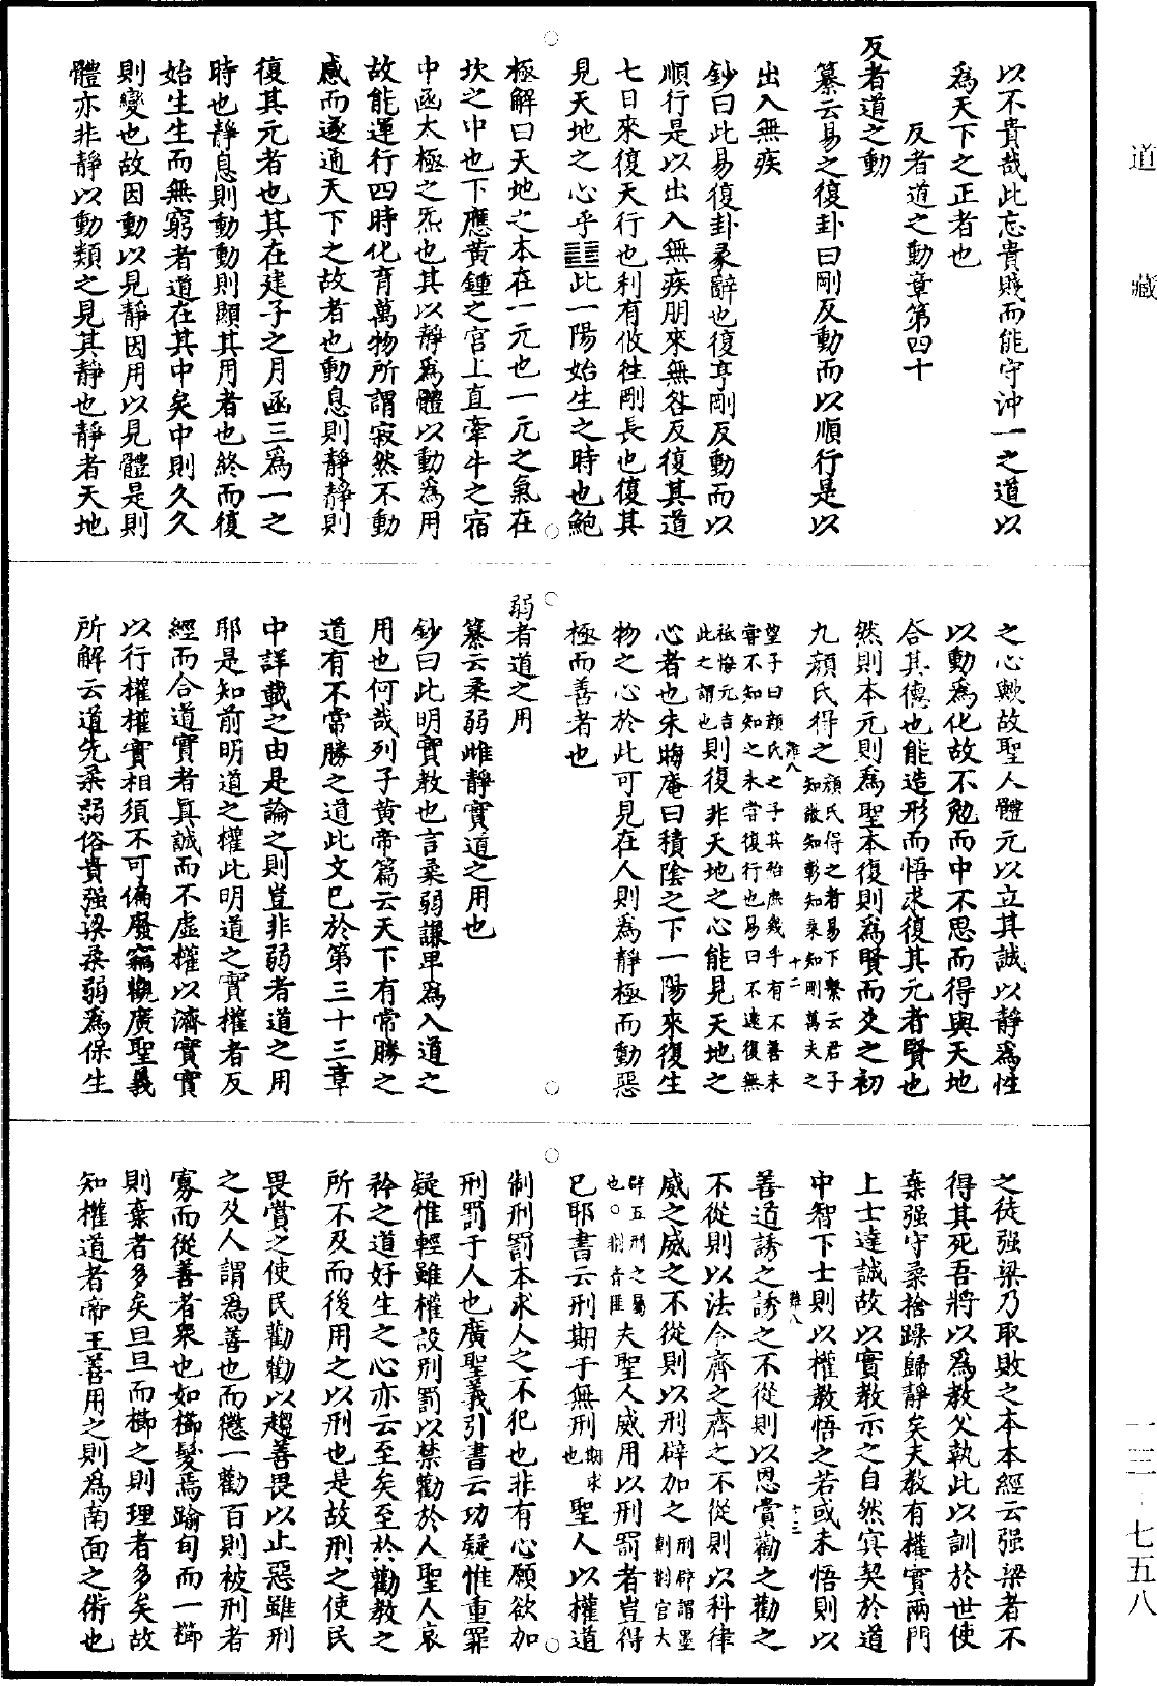 道藏
以不貴哉此忘貴賤而能守沖一之道以
爲天下之正者也
反者道之動章第四十
反者道之動
纂云易之復卦曰剛反動而以順行是以
出入無疾
鈔曰此易復卦彖辭也復亨剛反動而以
順行是以出入無疾朋來無咎反復其道
七日來復天行也利有攸往剛長也復其
見天地之心乎䷗此一陽始生之時也鮑
極解曰天地之本在一元也一元之氣在
坎之中也下應黃鍾之宮上直牽牛之宿
中函太極之炁也其以靜爲體以動爲用
故能運行四時化育萬物所謂寂然不動
感而遂通天下之故者也動息則靜靜則
復其元者也其在建子之月函三爲一之
時也靜息則動動則顯其用者也終而復
始生生而無窮者道在其中矣中則久久
則變也故因動以見靜因用以見體是則
體亦非靜以動類之見其靜也靜者天地
之心歟故聖人體元以立其誠以靜爲性
以動爲化故不勉而中不思而得與天地
合其德也能造形而悟求復其元者賢也
然則本元則爲聖本復則爲賢而爻之初
九顏氏得之顏氏得之者易下繫云君子知微知彰知柔知剛萬夫之
望子曰顏氏之子其殆庶幾乎有不善未嘗不知知之未嘗復行也易曰不遠復無
祗悔元吉此之謂也則復非天地之心能見天地之
心者也朱晦庵曰積陰之下一陽來復生
物之心於此可見在人則爲靜極而動惡
極而善者也
難八 十二
弱者道之用
纂云柔弱雌靜實道之用也
鈔曰此明實教也言柔弱謙卑爲入道之
用也何哉列子黃帝篇云天下有常勝之
道有不常勝之道此文已於第三十三章
中詳載之由是論之則豈非弱者道之用
耶是知前明道之權此明道之實權者反
經而合道實者眞誠而不虛權以濟實實
以行權權實相須不可偏廢竊觀廣聖義
所解云道先柔弱俗貴强梁柔弱爲保生
之徒强梁乃取敗之本本經云强梁者不
得其死吾將以爲教父執此以訓於世使
棄强守柔捨躁歸靜矣夫教有權實兩門
上士達誠故以實教示之自然冥契於道
中智下士則以權教悟之若或未悟則以
難八 十三
善道誘之誘之不從則以恩賞勸之勸之
不從則以法令齊之齊之不從則以科律
威之威之不從則以刑辟加之刑辟謂墨劓剕宮大
辟五刑之屬也○夫聖人威用以刑罰者豈得
已耶書云刑期于無刑期求也聖人以權道
制刑罰本求人之不犯也非有心願欲加
刑罰于人也廣聖義引書云功疑惟重罪
疑惟輕雖權設刑罰以禁勸於人聖人哀
矜之道好生之心亦云至矣至於勸教之
所不及而後用之以刑也是故刑之使民
畏賞之使民勸勸以趨善畏以止惡雖刑
之及人謂爲善也而懲一勸百則被刑者
寡而從善者衆也如櫛髮焉踰旬而一櫛
則棄者多矣旦旦而櫛之則理者多矣故
知權道者帝王善用之則爲南面之術也
一三・七五八